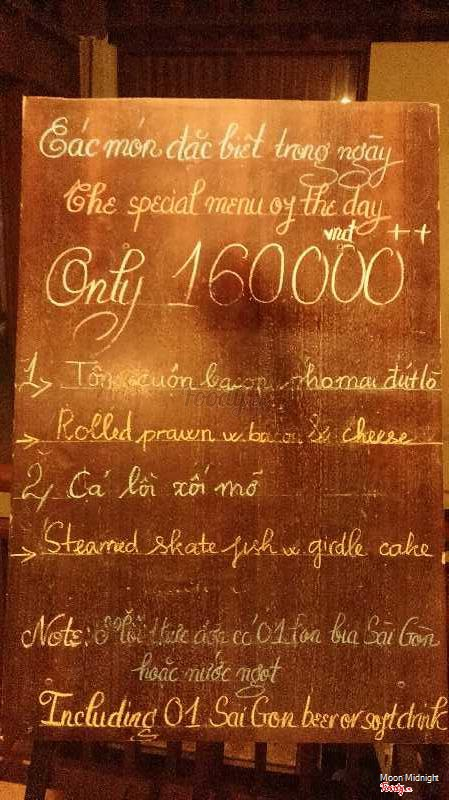 Các món đặc biệt trong ngày
The special menu of the day
Only 160000 vnđ ++
1, Tôm cuộn bacon phomai đút lò
Rolled prawn w bacon & cheese
2, Cá lồi xối mỡ
Steamed skate fish w girdle cake
Note: Mỗi thực đơn có 01 lon bia Sài Gòn
hoặc nước ngọt
Including 01 Sai Gon beer or soft drink
Moon Midnight
Foody.vn